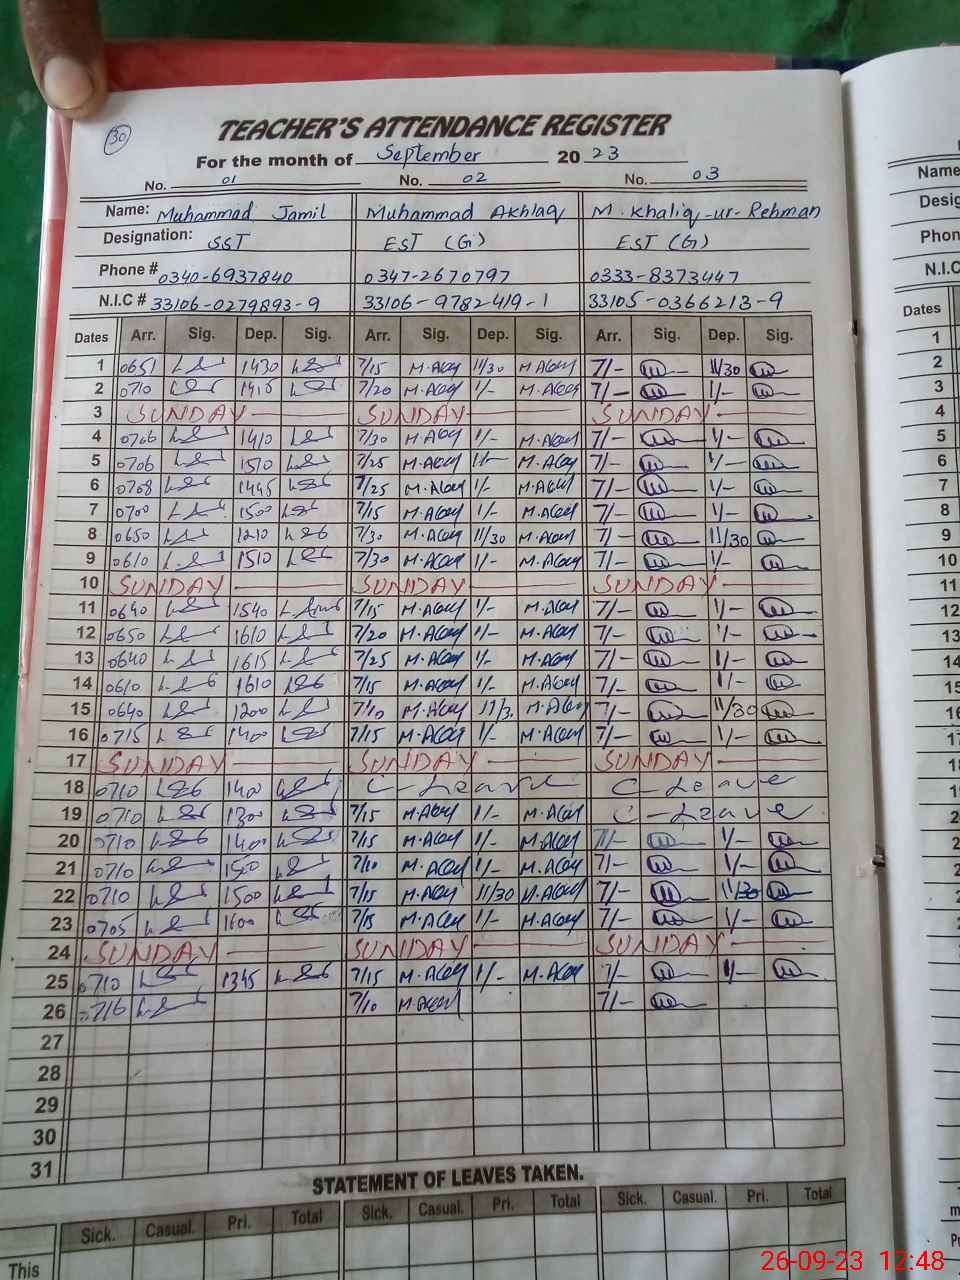 30
TEACHER'S ATTENDANCE REGISTER
For the month of September 20 23
No. 01 No. 02 No. 03
Name: Muhammad Jamil Muhammad Akhlaq M. Khaliq-ur-Rehman
Designation: SST EST (G) EST (G)
Phone # 0340-6937840 0347-2670797 0333-8373447
N.I.C # 33106-0279893-9 33106-9782419-1 33105-0366213-9
Dates Arr. Sig. Dep. Sig. Arr. Sig. Dep. Sig. Arr. Sig. Dep. Sig.
1 0651 1430 7/15 11/30 7/- 11/30
2 0710 1410 7/20 1/- 7/- 1/-
3 SUNDAY SUNDAY SUNDAY
4 0706 1410 7/30 1/- 7/- 1/-
5 0706 1510 7/25 1/- 7/- 1/-
6 0708 1445 7/25 1/- 7/- 1/-
7 0700 1500 7/15 1/- 7/- 1/-
8 0650 1210 7/30 11/30 7/- 11/30
9 0610 1510 7/30 1/- 7/- 1/-
10 SUNDAY SUNDAY SUNDAY
11 0640 1540 7/15 1/- 7/- 1/-
12 0650 1610 7/20 1/- 7/- 1/-
13 0640 1615 7/25 1/- 7/- 1/-
14 0610 1610 7/15 1/- 7/- 1/-
15 0640 1200 7/10 11/3. 7/- 11/30
16 0715 1400 7/15 1/- 7/- 1/-
17 SUNDAY SUNDAY SUNDAY
18 0710 1400 C-Leave C-Leave
19 0710 1300 7/15 1/- C-Leave
20 0710 1400 7/15 1/- 7/- 1/-
21 0710 1500 7/10 1/- 7/- 1/-
22 0710 1500 7/15 11/30 7/- 11/30
23 0705 1600 7/15 1/- 7/- 1/-
24 SUNDAY SUNDAY SUNDAY
25 0710 1345 7/15 1/- 7/- 1/-
26 0716 7/10 7/-
27
28
29
30
31
STATEMENT OF LEAVES TAKEN.
Sick. Casual. Pri. Total Sick. Casual. Pri. Total Sick. Casual. Pri. Total
This
Name
Desig
Phon
N.I.C
Dates
1
2
3
4
5
6
7
8
9
10
11
12
13
14
15
16
17
26-09-23 12:48